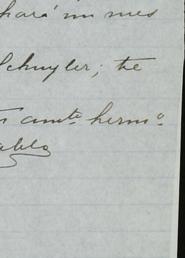 hará un mes
Schuyler; te
amto. hermo.
Pablo